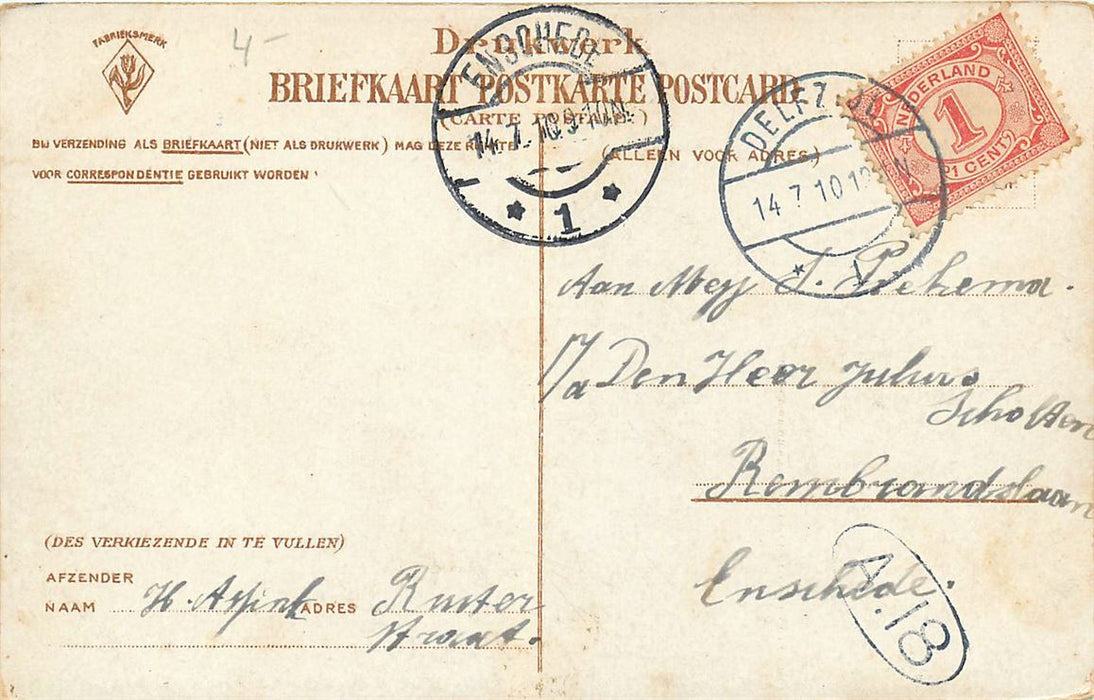 FABRIEKSMERK
4-
Drukwerk
BRIEFKAART POSTKARTE POSTCARD
(CARTE POSTALE)
BIJ VERZENDING ALS BRIEFKAART (NIET ALS DRUKWERK) MAG DEZE RUIMTE
(ALLEEN VOOR ADRES)
VOOR CORRESPONDENTIE GEBRUIKT WORDEN
ENSCHEDE
14.7.10 9-10N.
1
DELFZIJL
14 7 10 12 N
1
NEDERLAND
1
1 CENT
Aan Mejj S.
P/a Den Heer Julius
Scholten
Rembrandslaan
Enschede.
A.18
(DES VERKIEZENDE IN TE VULLEN)
AFZENDER
NAAM H. ADRES
straat.